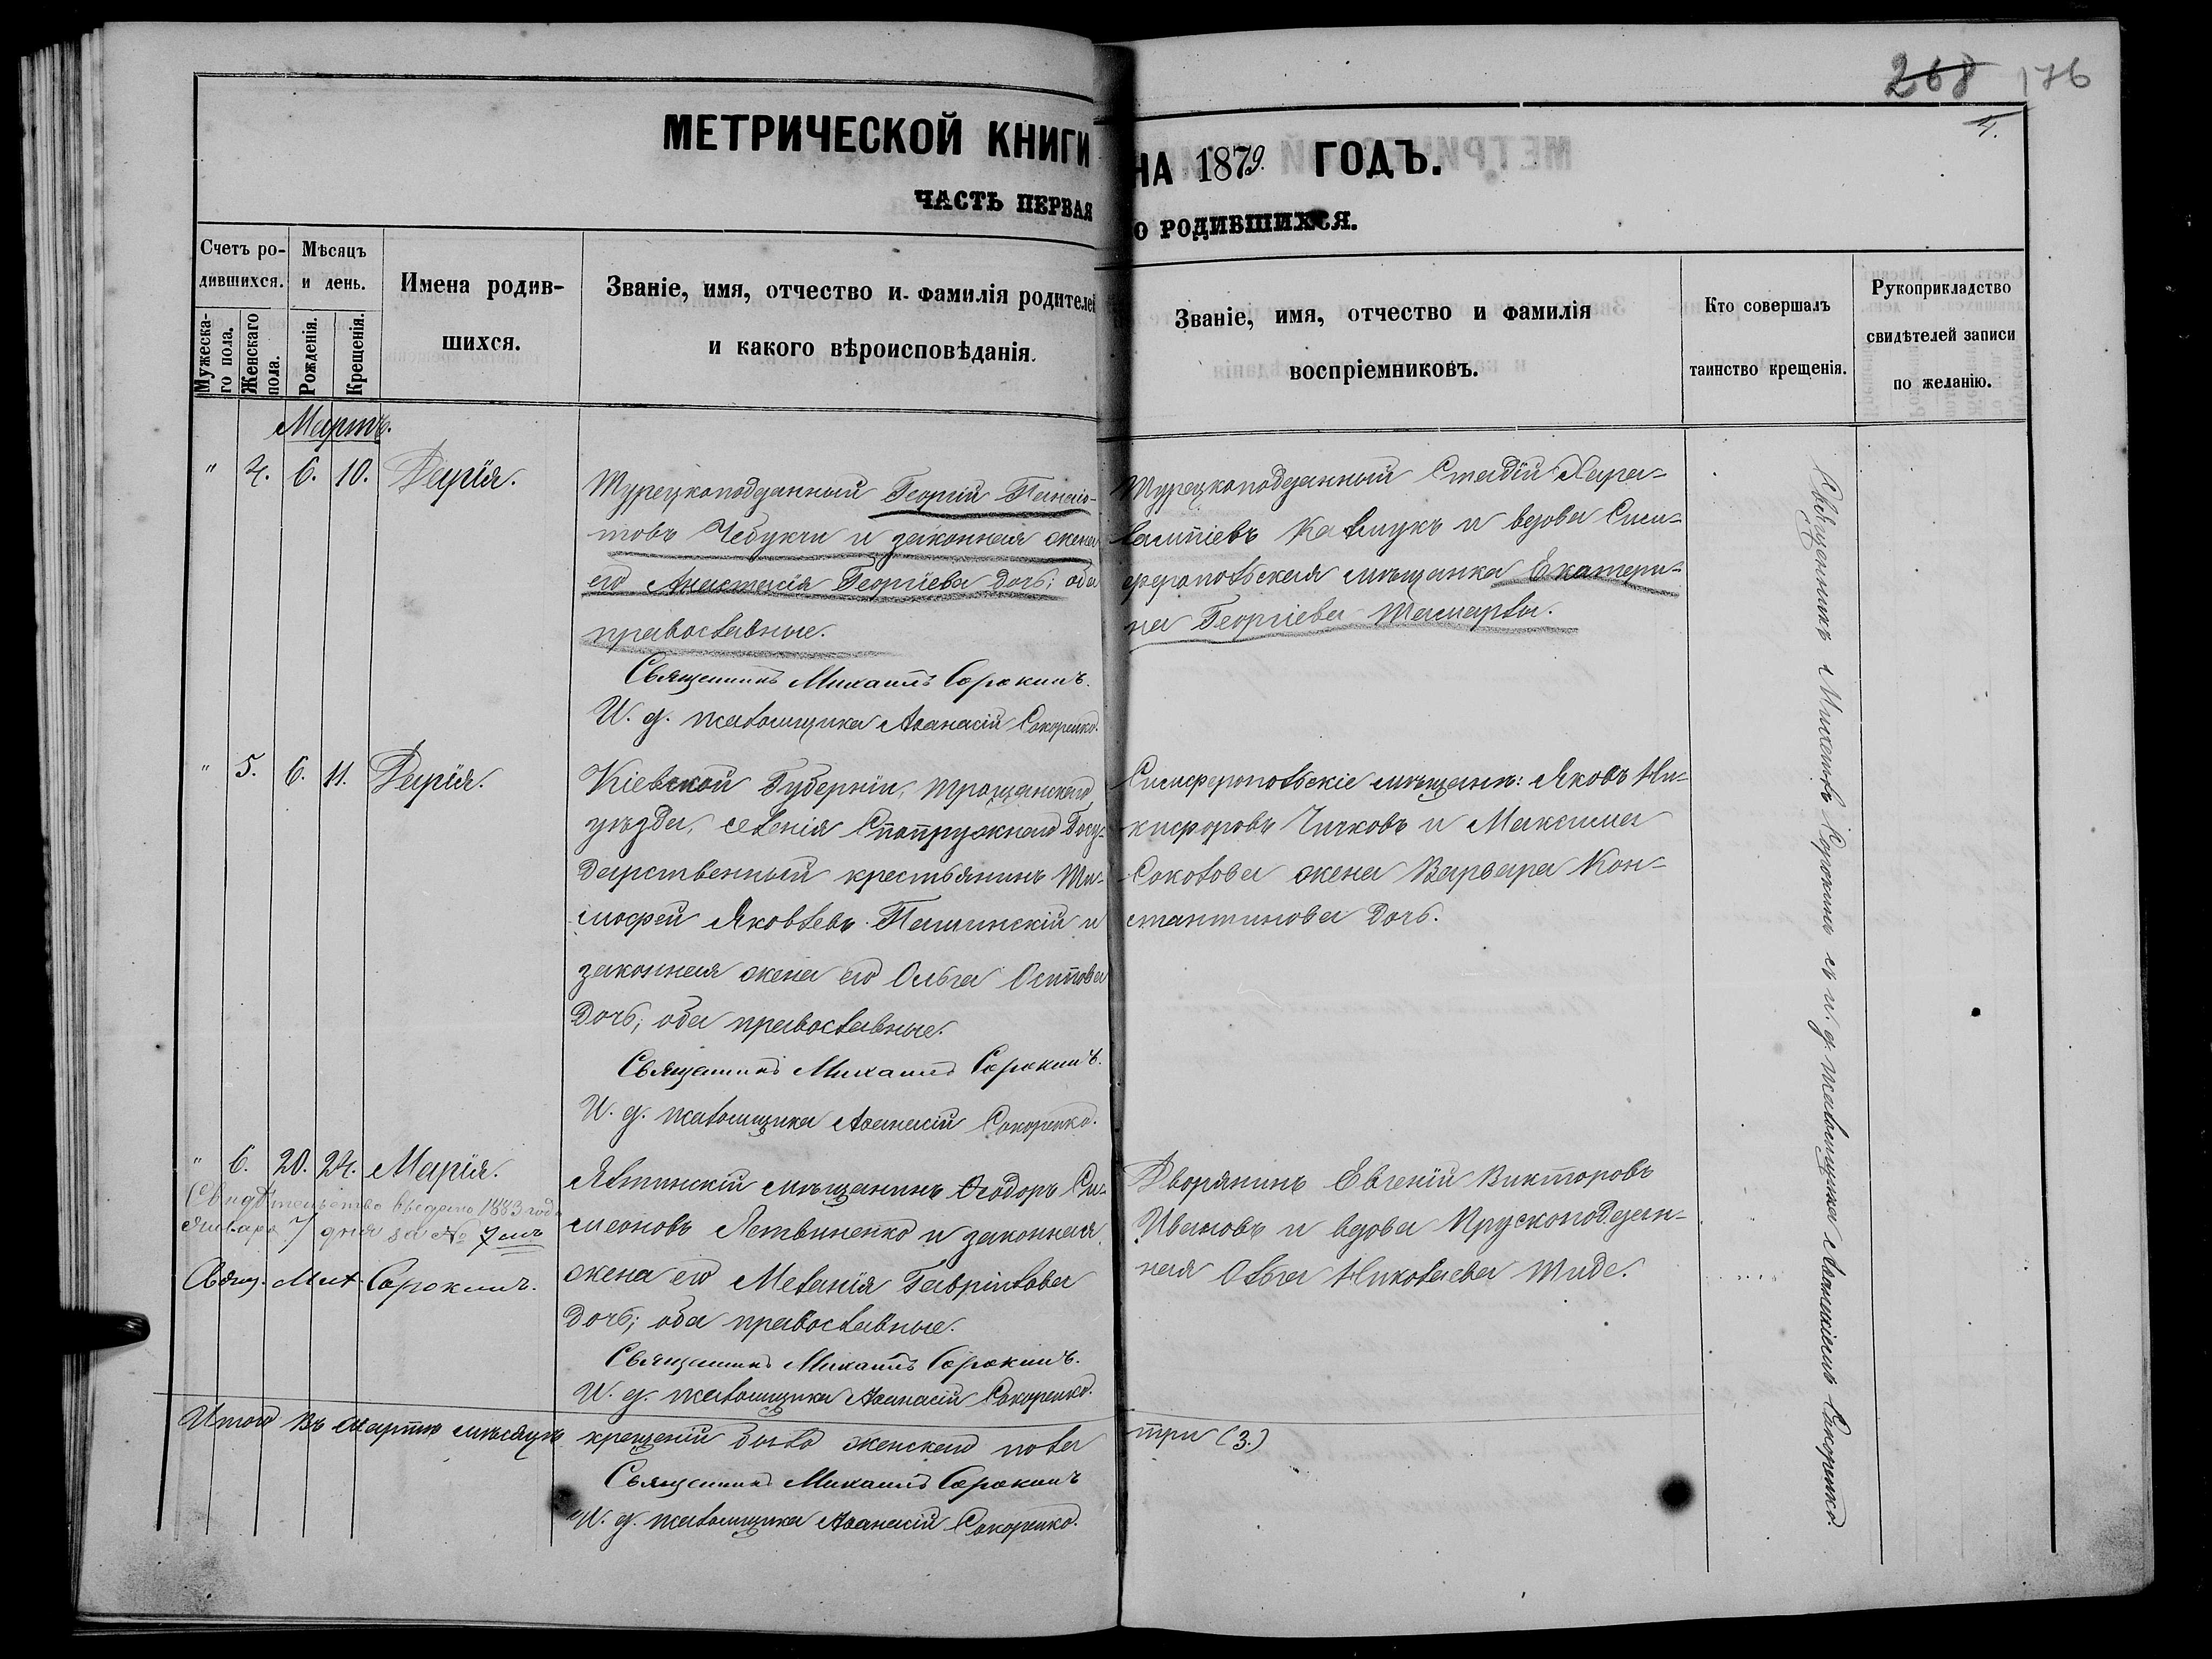 268 176
4.
МЕТРИЧЕСКОЙ КНИГИ НА 1879. ГОДЪ.
ЧАСТЬ ПЕРВАЯ О РОДИВШИХСЯ.
Счетъ ро-
дившихся.
Мужеска-
го пола.
Женскаго
пола.
Мѣсяцъ
и день.
Рожденія.
Крещенія.
Имена родив-
шихся.
Званіе, имя, отчество и фамилія родителей
и какого вѣроисповѣданія.
Званіе, имя, отчество и фамилія
воспріемниковъ.
Кто совершалъ
таинство крещенія.
Рукоприкладство
свидѣтелей записи
по желанію.
Мартъ.
" 4. 6. 10. Дарія.
Турецкоподданный Георгій Панаіо-
товъ Чебукчи и законная жена
его Анастасія Георгіева дочь; оба
православные.
Священникъ Михаилъ Сорокинъ.
И. д. псаломщика Аѳанасій Сикоренко.
Турецкоподданный Стадій Хара-
лампіевъ Калмукъ и вдова Сим-
феропольская мѣщанка Екатери-
на Георгіева Тамарлы.
" 5. 6. 11. Дарія.
Кіевской Губерніи, Тращанскаго
уѣзда, селенія Государственный крестьянинъ Ти-
мофей Яковлевъ Пашинскій и
законная жена его Ольга Осипова
дочь; оба православные.
Священникъ Михаилъ Сорокинъ.
И. д. псаломщика Аѳанасій Сикоренко.
Симферопольскіе мѣщане: Яковъ Ни-
кифоровъ Чичковъ и Максима
Соколова жена Варвара Кон-
стантинова дочь.
" 6. 20. 24. Марія.
Свидѣтельство выдано 1883 года
Января 7 дня за № 7 мъ
Свящ. Мих. Сорокинъ.
Ялтинскій мѣщанинъ Ѳеодоръ Си-
меоновъ Летвиненко и законная
жена его Меланія Гавріилова
дочь; оба православные.
Священникъ Михаилъ Сорокинъ.
И. д. псаломщика Аѳанасій Сикоренко.
Дворянинъ Евгеній Викторовъ
Ивановъ и вдова Прускоподдан-
ная Ольга Николаева Тиде.
Священникъ Михаилъ Сорокинъ съ и. д. псаломщика Аѳанасіемъ Сикоренко.
Итого въ мартѣ мѣсяцѣ крещеній было женскаго пола три (3.)
Священникъ Михаилъ Сорокинъ
И. д. псаломщика Аѳанасій Сикоренко.